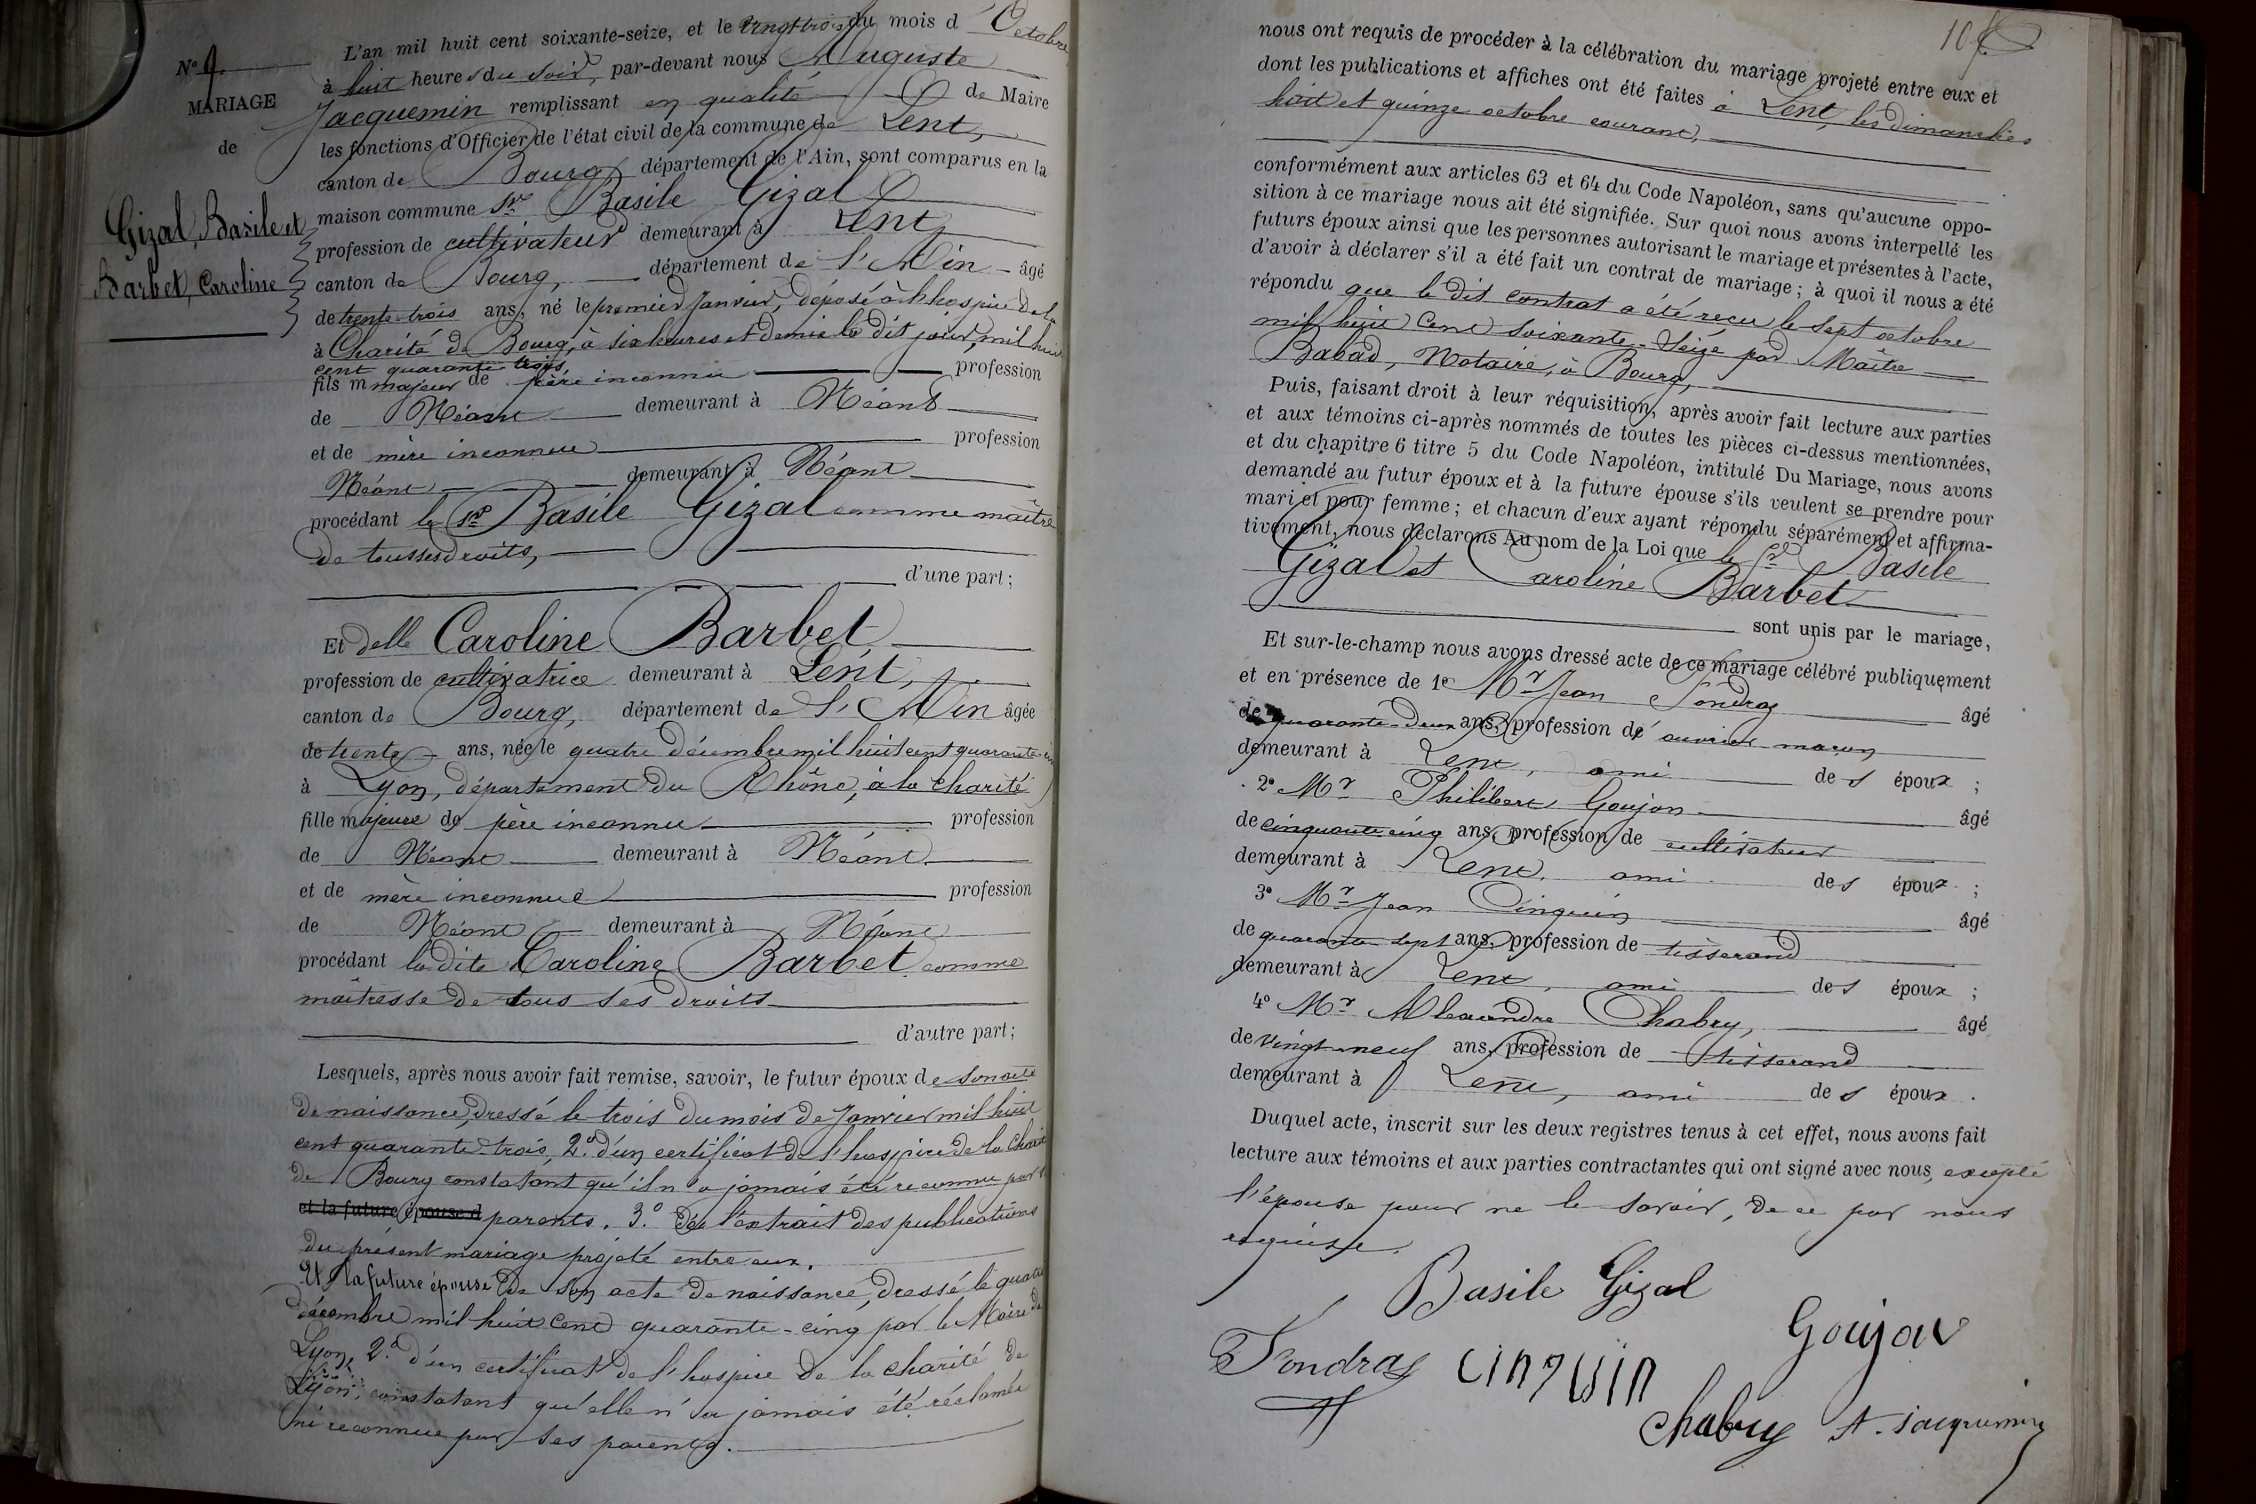 N° 9.
MARIAGE
de
Gizal, Basile et
Barbet, Caroline
L'an mil huit cent soixante-seize, et le vingt trois du mois d'Octobre
à huit heures du soir, par-devant nous Auguste
Jacquemin remplissant en qualité de Maire
les fonctions d'Officier de l'état civil de la commune de Lent,
canton de Bourg département de l'Ain, sont comparus en la
maison commune Sr Basile Gizal
profession de cultivateur demeurant à Lent
canton de Bourg, département de l'Ain âgé
de trente-trois ans, né le premier Janvier, déposé à l'hospice de la
à Charité de Bourg, à six heures et demie le dit jour, mil huit
cent quarante trois
fils majeur de père inconnu profession
de Néant demeurant à Néant
et de mère inconnue profession
Néant demeurant à Néant
procédant le Sr Basile Gizal comme maître
de tous ses droits,
d'une part;
Et delle Caroline Barbet
profession de cultivatrice demeurant à Lent,
canton de Bourg, département de l'Ain âgée
de trente ans, née le quatre décembre mil huit cent quarante-cinq
à Lyon, département du Rhône, à la charité
fille majeure de père inconnu profession
de Néant demeurant à Néant
et de mère inconnue profession
de Néant demeurant à Néant
procédant la dite Caroline Barbet comme
maîtresse de tous ses droits
d'autre part;
Lesquels, après nous avoir fait remise, savoir, le futur époux de son acte
de naissance, dressé le trois du mois de Janvier mil huit
cent quarante-trois, 2.° d'un certificat de l'hospice de la Charité
de Bourg constatant qu'il n'a jamais été reconnu par
et la future épouse d parents. 3.° de l'extrait des publications
du présent mariage projeté entre eux.
Et la future épouse de son acte de naissance, dressé le quatre
décembre mil huit cent quarante-cinq par le Maire de
Lyon, 2.° d'un certificat de l'hospice de la charité de
Lyon, constatant qu'elle n'a jamais été réclamée
ni reconnue par ses parents.
10
nous ont requis de procéder à la célébration du mariage projeté entre eux et
dont les publications et affiches ont été faites à Lent, les dimanches
huit et quinze octobre courant,
conformément aux articles 63 et 64 du Code Napoléon, sans qu'aucune oppo-
sition à ce mariage nous ait été signifiée. Sur quoi nous avons interpellé les
futurs époux ainsi que les personnes autorisant le mariage et présentes à l'acte,
d'avoir à déclarer s'il a été fait un contrat de mariage; à quoi il nous a été
répondu que le dit contrat a été reçu le sept octobre
mil huit cent soixante-seize par Maître
Babad, Notaire, à Bourg,
Puis, faisant droit à leur réquisition, après avoir fait lecture aux parties
et aux témoins ci-après nommés de toutes les pièces ci-dessus mentionnées,
et du chapitre 6 titre 5 du Code Napoléon, intitulé Du Mariage, nous avons
demandé au futur époux et à la future épouse s'ils veulent se prendre pour
mari et pour femme; et chacun d'eux ayant répondu séparément et affirma-
tivement, nous déclarons Au nom de la Loi que le Sr Basile
Gizal et Caroline Barbet
sont unis par le mariage,
Et sur-le-champ nous avons dressé acte de ce mariage célébré publiquement
et en présence de 1° Mr Jean Fondras âgé
de quarante-deux ans, profession d'ouvrier maçon
demeurant à Lent, ami des époux;
2° Mr Philibert Goujon âgé
de cinquante cinq ans, profession de cultivateur
demeurant à Lent, ami des époux;
3° Mr Jean Cinquin âgé
de quarante-sept ans, profession de tisserand
demeurant à Lent, ami des époux;
4° Mr Alexandre Chabry, âgé
de vingt-neuf ans, profession de tisserand
demeurant à Lent, ami des époux.
Duquel acte, inscrit sur les deux registres tenus à cet effet, nous avons fait
lecture aux témoins et aux parties contractantes qui ont signé avec nous, excepté
l'épouse pour ne le savoir, de ce par nous
requise.
Basile Gizal
Goujon
Fondras cinquin
Chabry A. Jacquemin